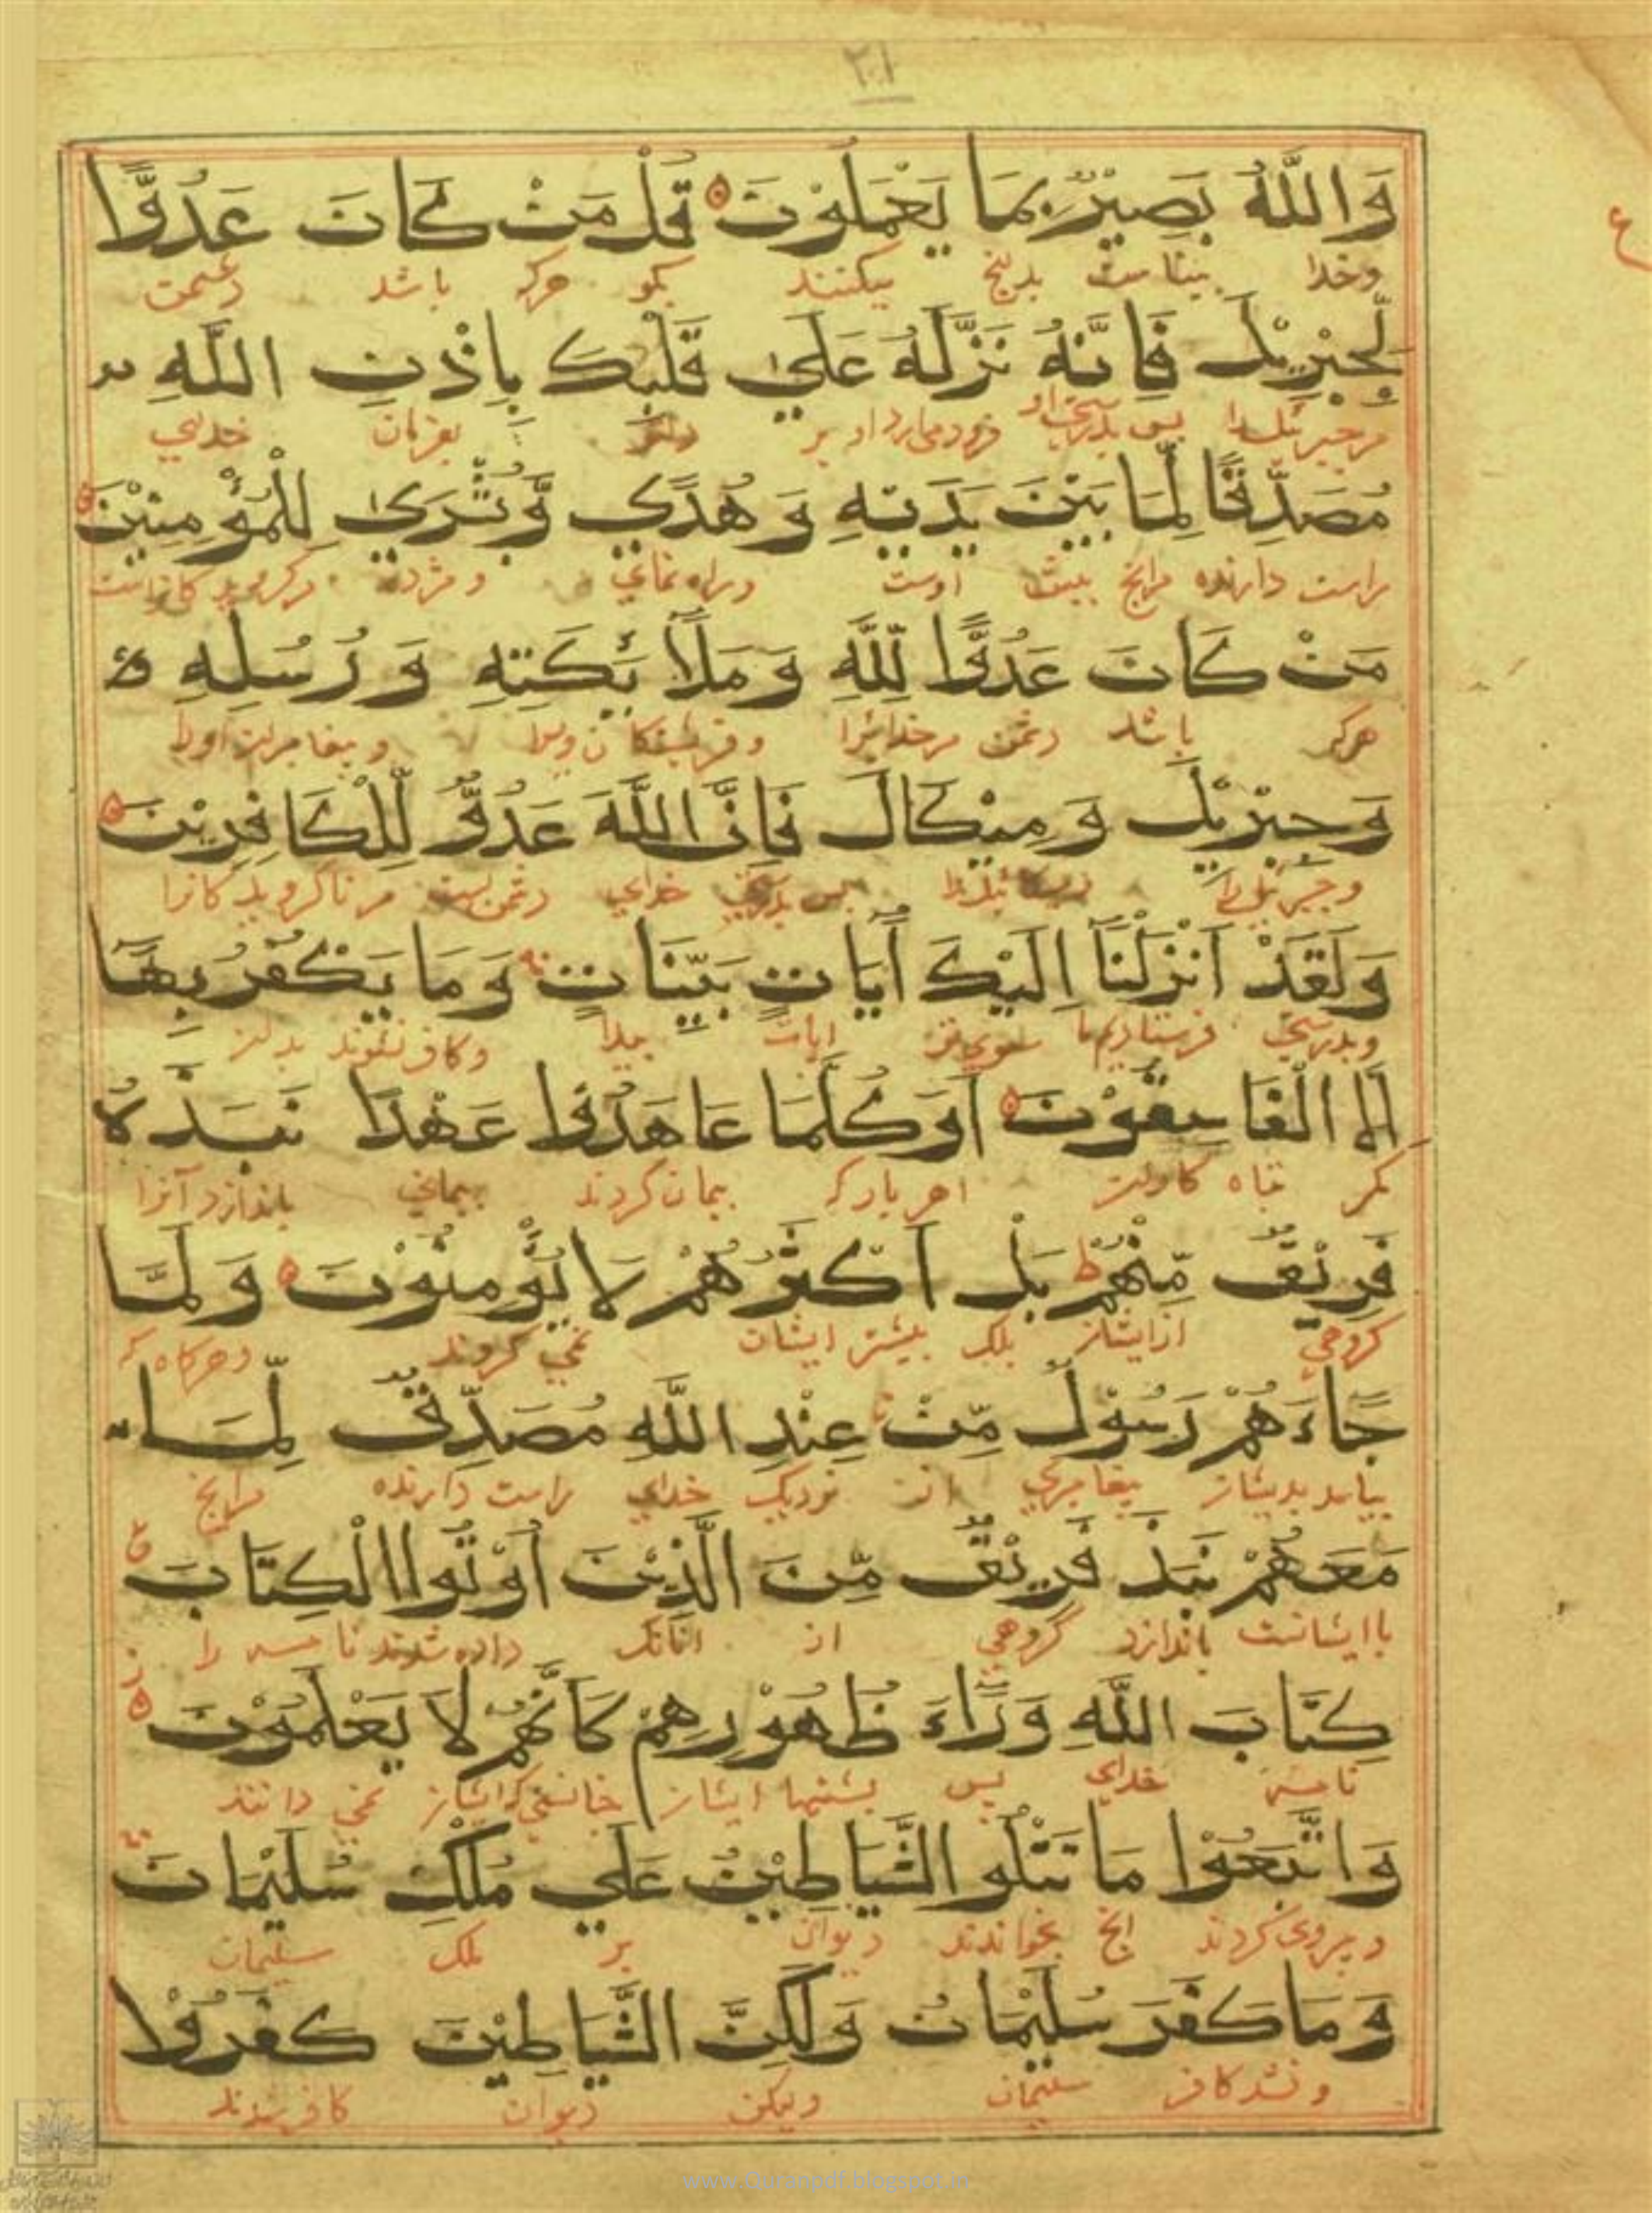 ۲۱
وَاللَّهُ بَصِيْرٌ بِمَا يَعْمَلُوْنَ قُلْ مَنْ كَانَ عَدُوًّا
ع
وخدا بیناست بدانچ میکنند بکو هرکه باشد دشمن
لِّجِبْرِيْلَ فَاِنَّهُ نَزَّلَهُ عَلٰي قَلْبِكَ بِاِذْنِ اللَّهِ
مرجبرئیل را پس بدرستی او فرود می ارد او بر بفرمان خدای
مُصَدِّقًا لِّمَا بَيْنَ يَدَيْهِ وَهُدًي وَّبُشْرٰي لِلْمُؤْمِنِيْنَ
راست دارنده مرانچ پیش اوست وراه نمای ومژده
مَنْ كَانَ عَدُوًّا لِّلَّهِ وَمَلَآئِكَتِهِ وَرُسُلِهِ
هرکه باشد دشمن مرخدایرا
وَجِبْرِيْلَ وَمِيْكَالَ فَاِنَّ اللَّهَ عَدُوٌّ لِّلْكَافِرِيْنَ
وجبرئیل را پس بدرستی خدای دشمن است مر ناکرویدکانرا
وَلَقَدْ اَنْزَلْنَآ اِلَيْكَ اٰيَاتٍ بَيِّنَاتٍ وَمَا يَكْفُرُ بِهَآ
وبدرستی فرستادیم ما سوی تو ایات وکافر نشوند بدان
اِلَّا الْفَاسِقُوْنَ اَوَكُلَّمَا عَاهَدُوْا عَهْدًا نَّبَذَهُ
مکر هر بار که پیمان کردند پیمانی باندازد آنرا
فَرِيْقٌ مِّنْهُمْ بَلْ اَكْثَرُهُمْ لَا يُؤْمِنُوْنَ وَلَمَّا
کروهی ازایشان بلک بیشتر ایشان نمی کروند وهرکاه که
جَآءَهُمْ رَسُوْلٌ مِّنْ عِنْدِ اللَّهِ مُصَدِّقٌ لِّمَا
بیامد بدیشان پیغامبری از نزدیک خدای راست دارنده مرانچ
مَعَهُمْ نَبَذَ فَرِيْقٌ مِّنَ الَّذِيْنَ اُوْتُوا الْكِتَابَ
باایشانست باندازد گروهی از انانک داده شدند نامه را
كِتَابَ اللَّهِ وَرَآءَ ظُهُوْرِهِمْ كَاَنَّهُمْ لَا يَعْلَمُوْنَ
نامه خدای پس پشتها ایشان نمی دانند
وَاتَّبَعُوْا مَا تَتْلُو الشَّيَاطِيْنُ عَلٰي مُلْكِ سُلَيْمَانَ
وپیروی کردند انچ بخواندند دیوان بر ملک سلیمان
وَمَا كَفَرَ سُلَيْمَانُ وَلَكِنَّ الشَّيَاطِيْنَ كَفَرُوْا
ونشد کافر سلیمان ولیکن دیوان کافر شدند
www.Quranpdf.blogspot.in